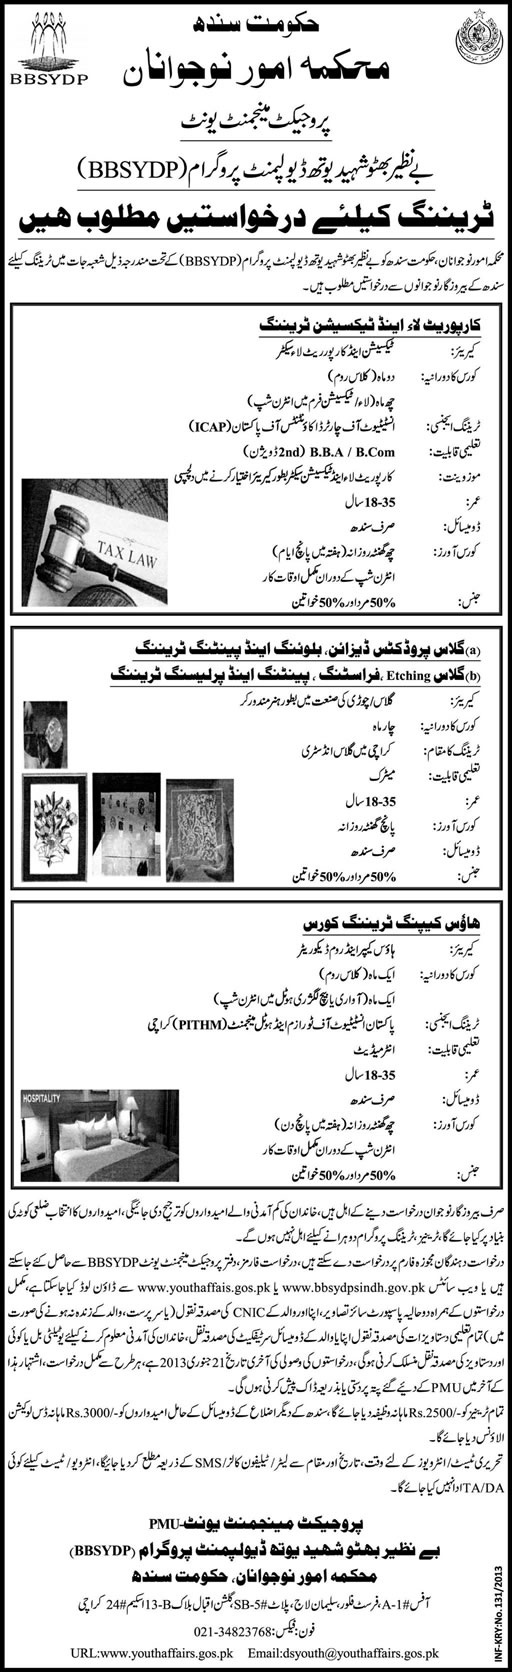 حکومت سندھ
محکمہ امور نوجوانان
BBSYDP
پروجیکٹ مینجمنٹ یونٹ
بے نظیر بھٹو شہید یوتھ ڈیولپمنٹ پروگرام (BBSYDP)
ٹریننگ کیلئے درخواستیں مطلوب ھیں
محکمہ امور نوجوانان، حکومت سندھ کو بے نظیر بھٹو شہید یوتھ ڈیولپمنٹ پروگرام (BBSYDP) کے تحت مندرجہ ذیل شعبہ جات میں ٹریننگ کیلئے
سندھ کے بیروزگار نوجوانوں سے درخواستیں مطلوب ہیں۔
کارپوریٹ لاء اینڈ ٹیکسیشن ٹریننگ
کیریئر: ٹیکسیشن اینڈ کارپوریٹ لاء سیکٹر
کورس کا دورانیہ: دو ماہ (کلاس روم)
چھ ماہ (لاء/ٹیکسیشن فرم میں انٹرن شپ)
ٹریننگ ایجنسی: انسٹیٹیوٹ آف چارٹرڈ اکاؤنٹنٹس آف پاکستان (ICAP)
تعلیمی قابلیت: B.B.A / B.Com (2nd ڈویژن)
موزونیت: کارپوریٹ لاء اینڈ ٹیکسیشن سیکٹر بطور کیریئر اختیار کرنے میں دلچسپی
عمر: 18-35 سال
ڈومیسائل: صرف سندھ
کورس آورز: چھ گھنٹہ روزانہ (ہفتہ میں پانچ ایام)
انٹرن شپ کے دوران مکمل اوقات کار
جنس: 50% مرد اور 50% خواتین
TAX LAW
(a) گلاس پروڈکٹس ڈیزائن، بلوئنگ اینڈ پینٹنگ ٹریننگ
(b) گلاس Etching، فراسٹنگ، پینٹنگ اینڈ پرلیسنگ ٹریننگ
کیریئر: گلاس/چوڑی کی صنعت میں بطور ہنر مند ورکر
کورس کا دورانیہ: چار ماہ
ٹریننگ کا مقام: کراچی میں گلاس انڈسٹری
تعلیمی قابلیت: میٹرک
عمر: 18-35 سال
کورس آورز: پانچ گھنٹہ روزانہ
ڈومیسائل: صرف سندھ
جنس: 50% مرد اور 50% خواتین
ھاؤس کیپنگ ٹریننگ کورس
کیریئر: ہاؤس کیپر اینڈ روم ڈیکوریٹر
کورس کا دورانیہ: ایک ماہ (کلاس روم)
ایک ماہ (آواری یا بیچ لگژری ہوٹل میں انٹرن شپ)
ٹریننگ ایجنسی: پاکستان انسٹیٹیوٹ آف ٹورازم اینڈ ہوٹل مینجمنٹ (PITHM) کراچی
تعلیمی قابلیت: انٹرمیڈیٹ
عمر: 18-35 سال
ڈومیسائل: صرف سندھ
کورس آورز: چھ گھنٹہ روزانہ (ہفتہ میں پانچ دن)
انٹرن شپ کے دوران مکمل اوقات کار
جنس: 50% مرد اور 50% خواتین
HOSPITALITY
صرف بیروزگار نوجوان درخواست دینے کے اہل ہیں، خاندان کی کم آمدنی والے امیدواروں کو ترجیح دی جائیگی، امیدواروں کا انتخاب ضلعی کوٹہ کی
بنیاد پر کیا جائے گا، ٹرینیز، ٹریننگ پروگرام دوہرانے کیلئے اہل نہیں ہوں گے۔
درخواست دہندگان مجوزہ فارم پر درخواست دے سکتے ہیں، درخواست فارمز، دفتر پروجیکٹ مینجمنٹ یونٹ BBSYDP سے حاصل کئے جاسکتے
ہیں یا ویب سائٹس www.bbsydpsindh.gov.pk یا www.youthaffais.gos.pk سے ڈاؤن لوڈ کیا جاسکتا ہے، مکمل
درخواستوں کے ہمراہ دو حالیہ پاسپورٹ سائز تصاویر، اپنا اور والد کے CNIC کی مصدقہ نقول (یا سرپرست، والد کے زندہ نہ ہونے کی صورت
میں) تمام تعلیمی دستاویزات کی مصدقہ نقول اپنا یا والد کے ڈومیسائل سرٹیفکیٹ کی مصدقہ نقل، خاندان کی آمدنی معلوم کرنے کیلئے یوٹیلٹی بل یا کوئی
اور دستاویز کی مصدقہ نقل منسلک کرنی ہوگی، درخواستوں کی وصولی کی آخری تاریخ 21 جنوری 2013 ہے، ہر طرح سے مکمل درخواست، اشتہار ہذا
کے آخر میں PMU کے دیئے گئے پتہ پر دستی یا بذریعہ ڈاک پیش کرنی ہوں گی۔
تمام ٹرینیز کو Rs.2500/- ماہانہ وظیفہ دیا جائے گا، سندھ کے دیگر اضلاع کے ڈومیسائل کے حامل امیدواروں کو Rs.3000/- ماہانہ ڈس لوکیشن
الاؤنس دیا جائے گا۔
تحریری ٹیسٹ/انٹرویوز کے لئے وقت، تاریخ اور مقام سے لیٹر/ٹیلیفون کالز/SMS کے ذریعہ مطلع کردیا جائیگا، انٹرویو/ٹیسٹ کیلئے کوئی
TA/DA ادا نہیں کیا جائے گا۔
پروجیکٹ مینجمنٹ یونٹ-PMU
بے نظیر بھٹو شھید یوتھ ڈیولپمنٹ پروگرام (BBSYDP)
محکمہ امور نوجوانان، حکومت سندھ
آفس #A-1، فرسٹ فلور، سلیمان لاج، پلاٹ #SB-5 گلشن اقبال بلاک 13-B اسکیم #24 کراچی
فون: فیکس: 021-34823768
URL:www.youthaffairs.gos.pk Email:dsyouth@youthaffairs.gos.pk
INF-KRY:No.131/2013